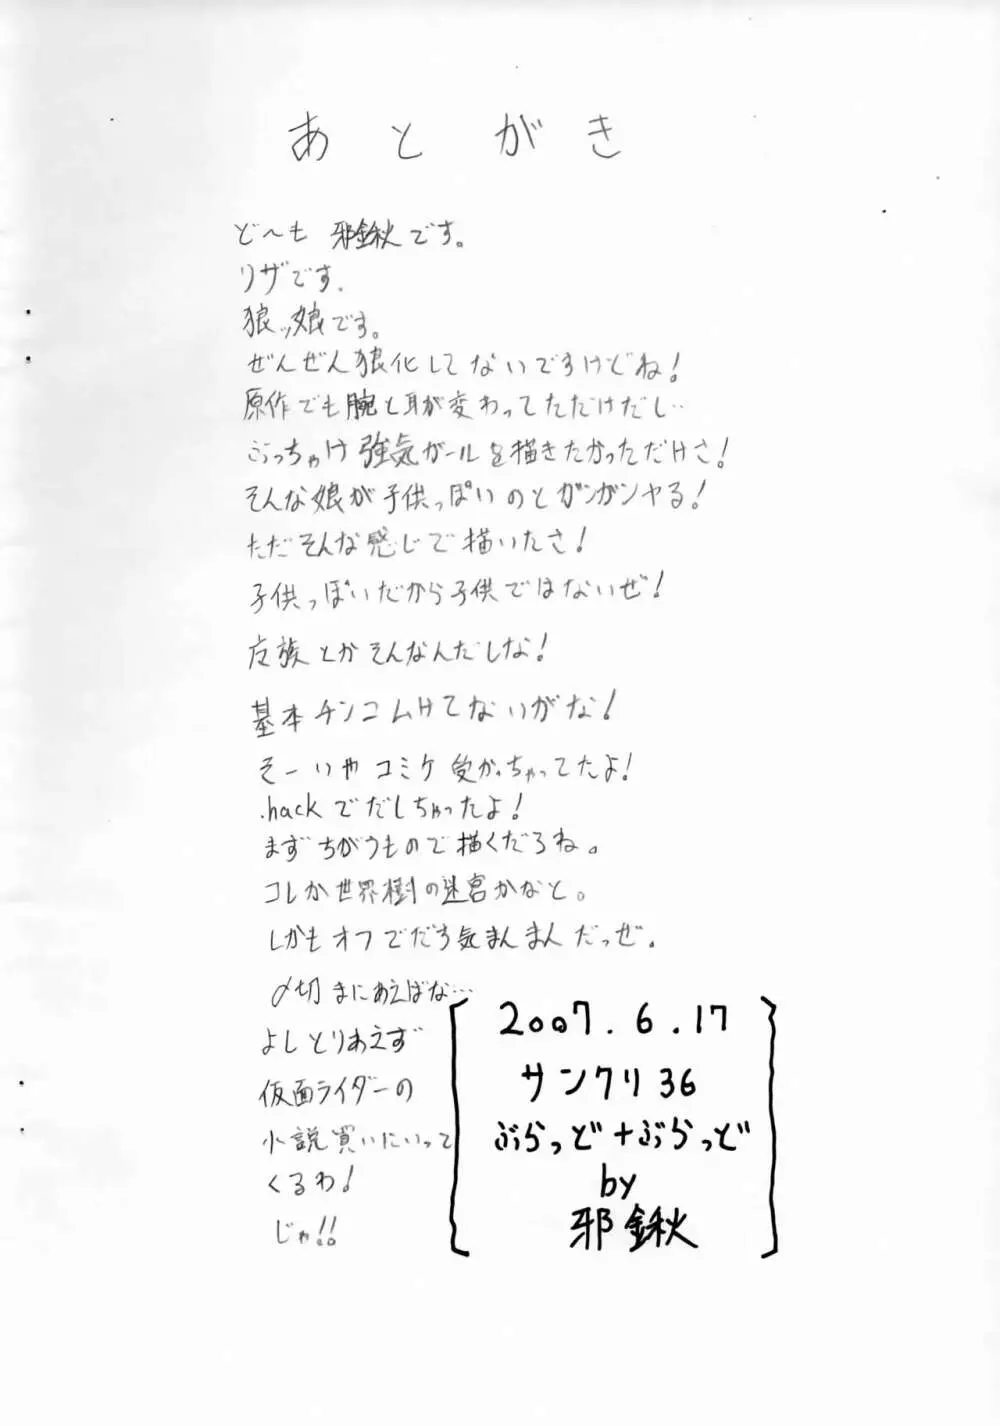 あとがき
ど〜も 邪鍬です。
リザです.
狼ッ娘です。
ぜんぜん狼化してないですけどね!
原作でも腕と耳が変わってただけだし‥
ぶっちゃけ強気ガールを描きたかっただけさ!
そんな娘が子供っぽいのとガンガンヤる!
ただそんな感じで描いたさ!
子供っぽいだから子供ではないぜ!
皮族とかそんなんだしな!
基本チンコムけてないがな!
そーいやコミケ受かっちゃってたよ!
.hackでだしちゃったよ!
まずちがうもので描くだろね。
コレか世界樹の迷宮かなと。
しかもオフでだす気まんまんだっぜ.
〆切まにあえばな…
よしとりあえず
仮面ライダーの
小説買いにいって
くるわ!
じゃ!!
2007.6.17
サンクリ36
ぶらっど+ぶらっど
by
邪鍬